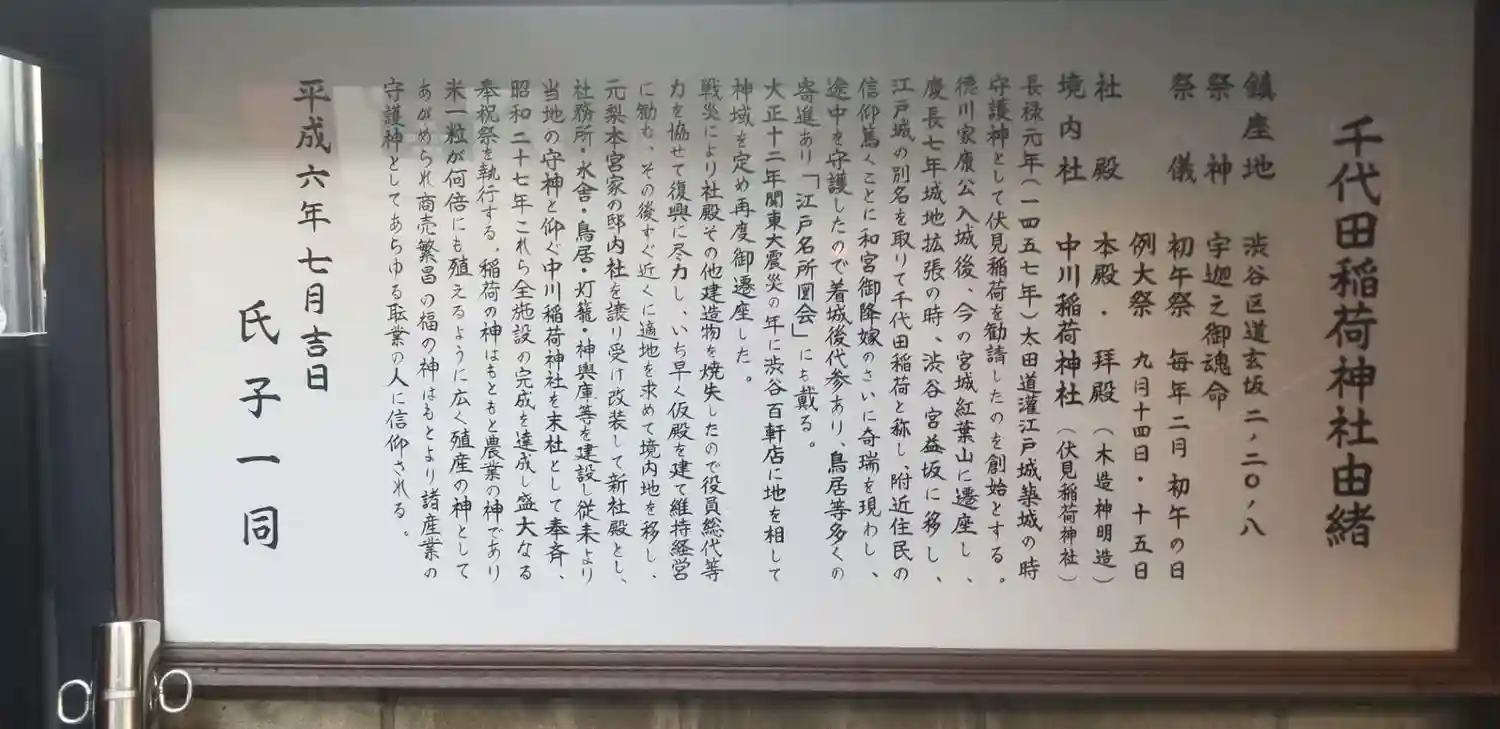 千代田稲荷神社由緒
鎮座地 渋谷区道玄坂二ノ二〇ノ八
祭神 宇迦之御魂命
祭儀 初午祭 毎年二月 初午の日
例大祭 九月十四日・十五日
社殿 本殿・拝殿（木造神明造）
境内社 中川稲荷神社（伏見稲荷神社）
長禄元年（一四五七年）太田道灌江戸城築城の時
守護神として伏見稲荷を勧請したのを創始とする。
徳川家康公入城後、今の宮城紅葉山に遷座し、
慶長七年城地拡張の時、渋谷宮益坂に移し、
江戸城の別名を取りて千代田稲荷と称し、附近住民の
信仰篤くことに和宮御降嫁のさいに奇瑞を現わし、
途中を守護したので着城後代参あり、鳥居等多くの
寄進あり「江戸名所図会」にも戴る。
大正十二年関東大震災の年に渋谷百軒店に地を相して
神域を定め再度御遷座した。
戦災により社殿その他建造物を焼失したので役員総代等
力を協せて復興に尽力し、いち早く仮殿を建て維持経営
に励む、その後すぐ近くに適地を求めて境内地を移し、
元梨本宮家の邸内社を譲り受け改装して新社殿とし、
社務所・水舎・鳥居・灯籠・神輿庫等を建設し従来より
当地の守神と仰ぐ中川稲荷神社を末社として奉斉、
昭和二十七年これら全施設の完成を達成し盛大なる
奉祝祭を執行する。稲荷の神はもともと農業の神であり
米一粒が何倍にも殖えるように広く殖産の神として
あがめられ商売繁昌の福の神はもとより諸産業の
守護神としてあらゆる職業の人に信仰される。
平成六年七月吉日
氏子一同